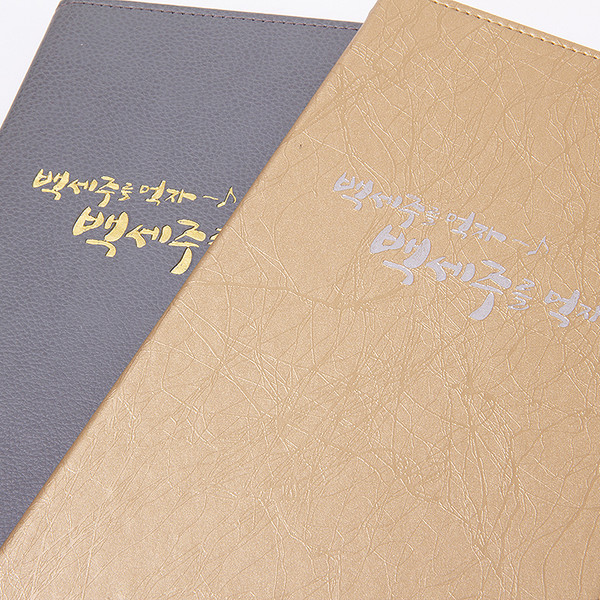 백세주를 먹자~♪
백세주를
백세주를 먹자~♪
백세주를 먹자